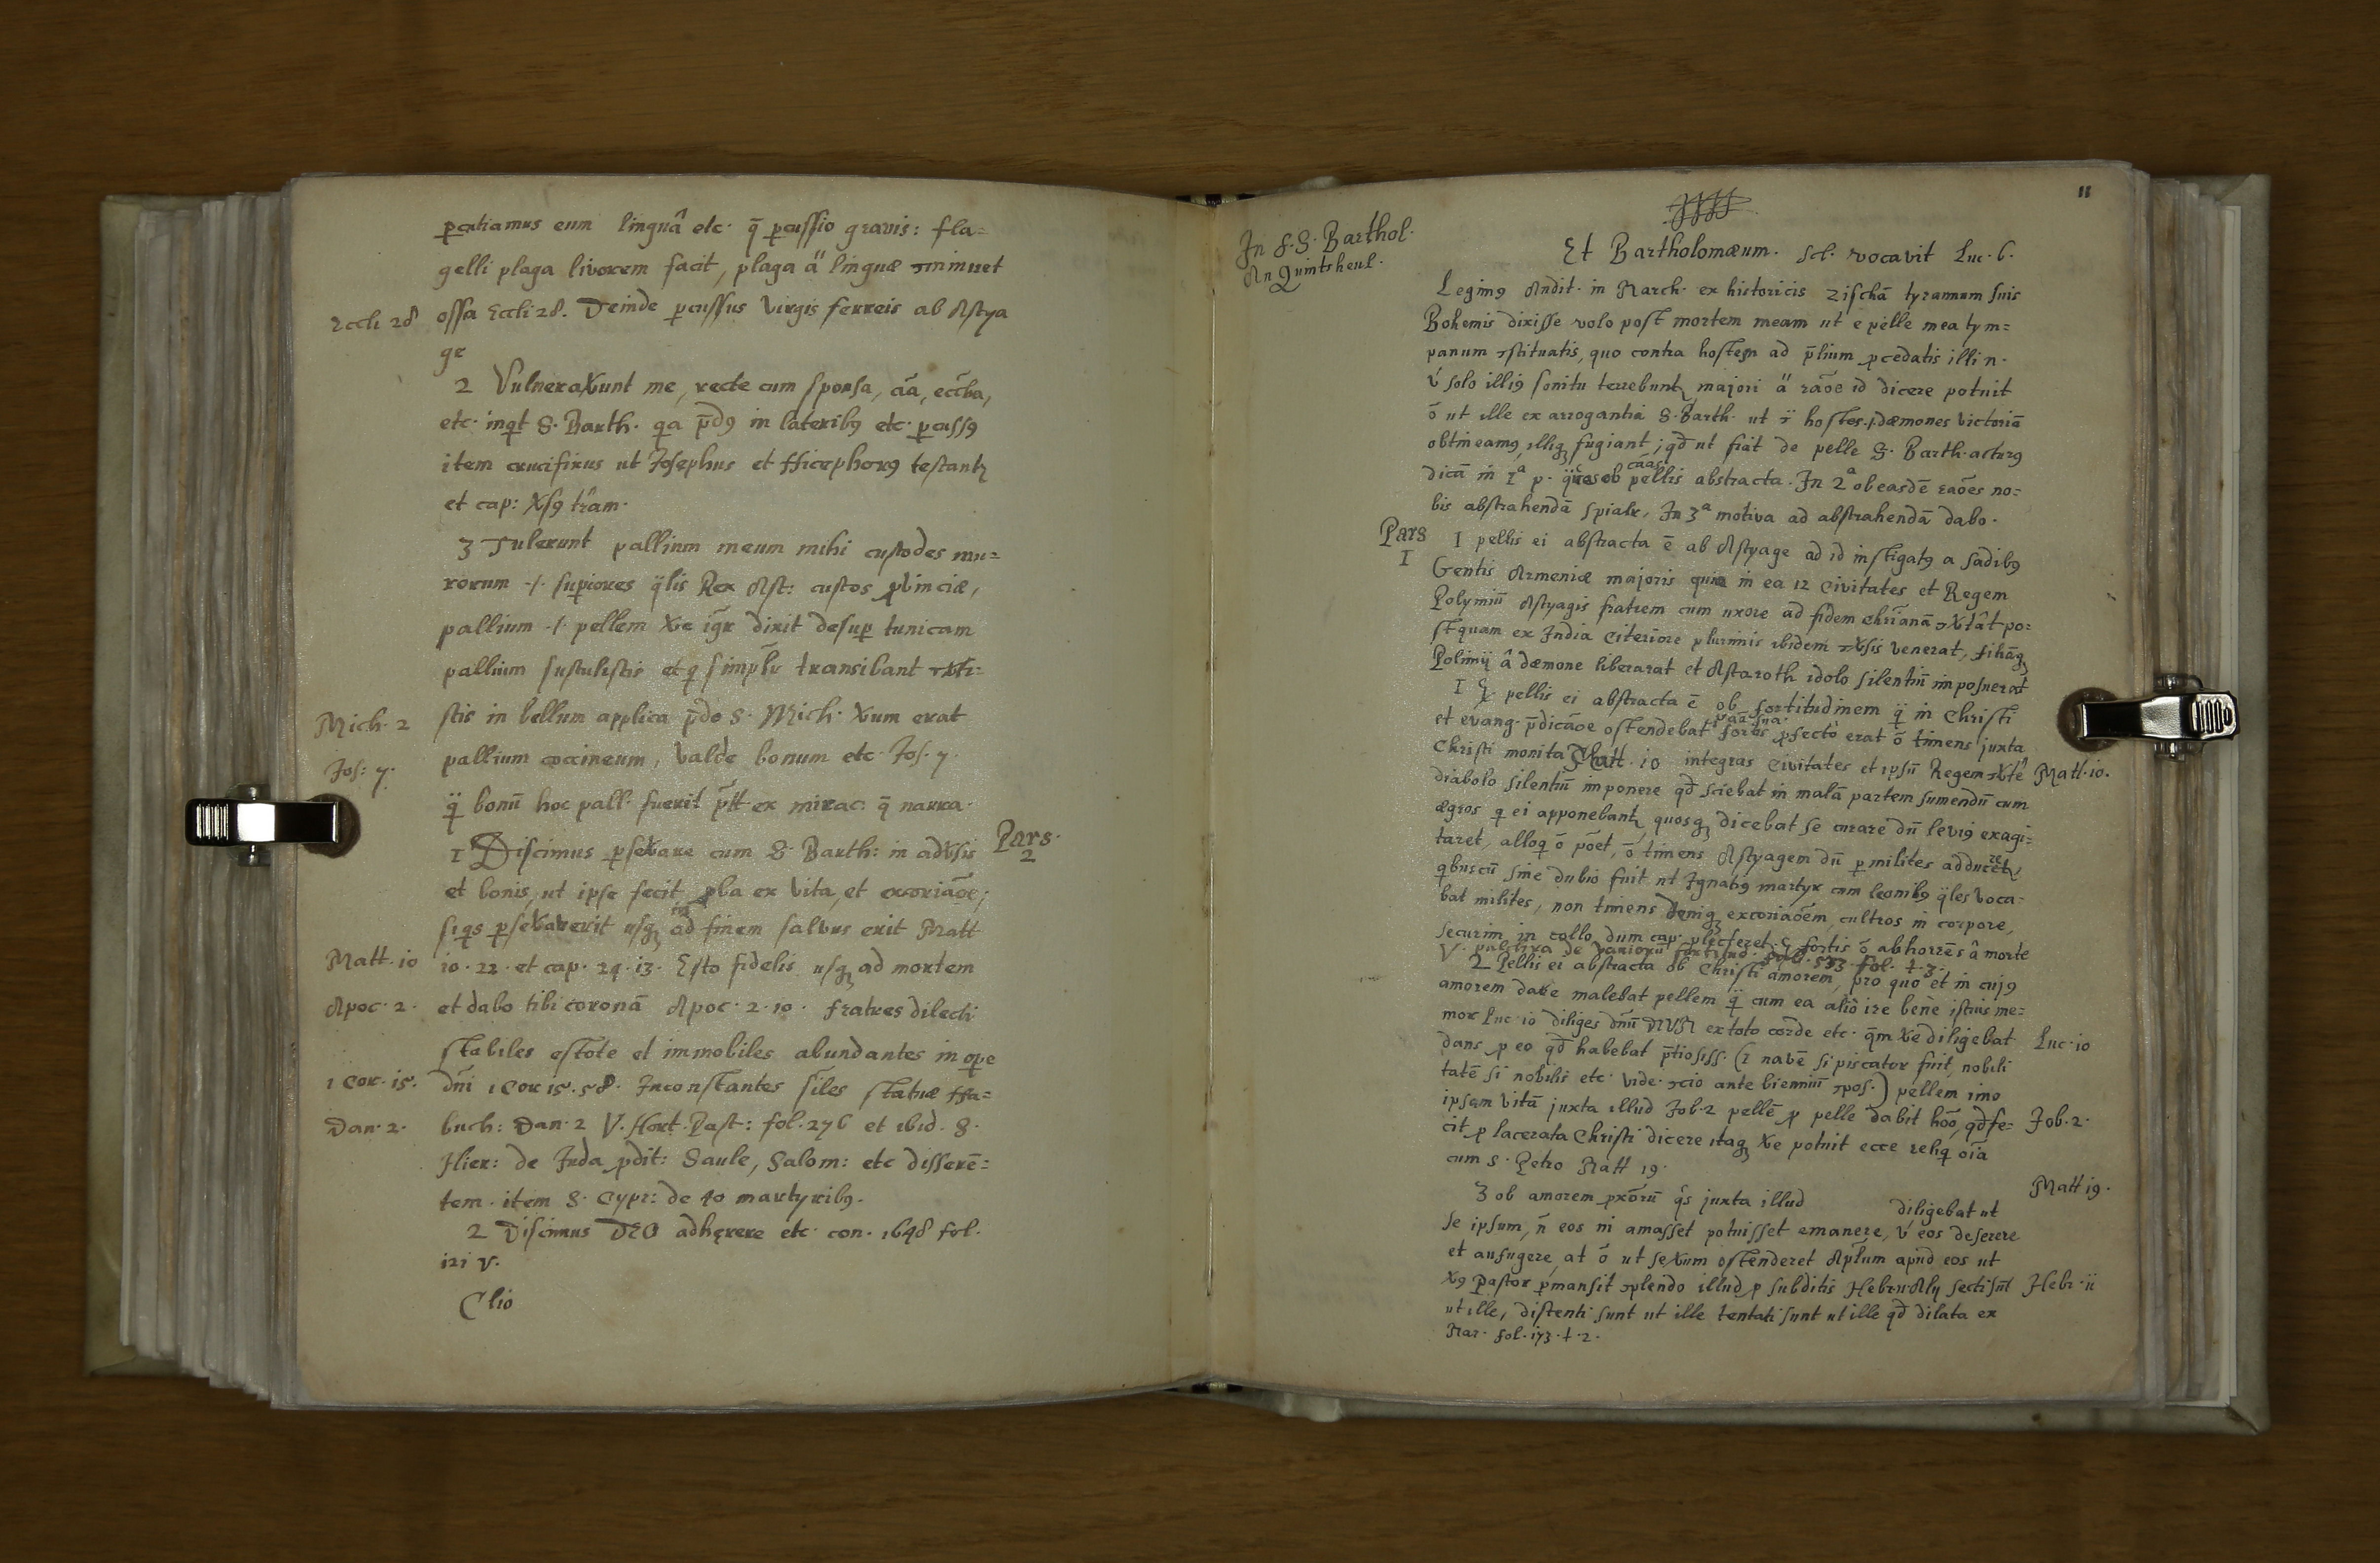 percutiamus eum linguâ etc. q̄ percussio gravis: fla=
gelli plaga livorem facit, plaga a͏̈ linguæ ꝯminuet
Eccli 28 ossa Eccli 28. Deinde percussus virgis ferreis ab Astya
ge
2 Vulneraverunt me, recte cum sponsa, aīa, eccl̄ia,
etc. inqt S. Barth. qa p̄dꝰ in lateribꝰ etc. percussꝰ
item crucifixus ut Josephus et Nicephorꝰ testantꝛ
et cap: Xsꝰ tr̄am.
3 Tulerunt pallium meum mihi custodes mu=
rorum .|. superiores q̈lis Rex Ast: custos ꝓvinciæ,
pallium .|. pellem Ve igr̄ dixit desuper tunicam
pallium sustulistis et q simplr̄ transibant
Mich. 2 stis in bellum applica p̄do S. Mich. Verum erat
Jos: 7. pallium coccineum, valde bonum etc. Jos. 7.
q̈ bonū hoc pall. fuerit p̄tt ex mirac: q̄ narra.
Pars 2
1 Discimus perseverare cum S. Barth: in adversis
et bonis, ut ipse fecit, ꝓba ex vita, et excoriāoe;
siqs perseveraverit usqꝫ in ad finem salvus erit Matt
Matt. 10 10. 22. et cap. 24. 13. Esto fidelis usqꝫ ad mortem
Apoc. 2. et dabo tibi coronā Apoc. 2. 10. fratres dilecti
stabiles estote et immobiles abundantes in ope
1 Cor. 15. dn̄i 1 Cor 15. 58. Inconstantes sīles statuæ Na=
Dan. 2. buch: Dan. 2 V. Hort. Past: fol. 276 et ibid. S.
Hier: de Juda ꝓdit: Saule, Salom: etc disserē=
tem. item S. Cypr: de 40 martyribꝰ.
2 Discimus DEO adhęrere etc. con. 1648 fol.
121 v.
Clio
11
In F. S. Barthol.
An
Et Bartholomæum. scl. vocavit Luc. 6.
Legimꝰ Audit. in March. ex historicis Zischā tyrannum suis
Bohemis dixisse volo post mortem meam ut e pelle mea tym=
panum ꝯstituatis, quo contra hostem ad p̄lium ꝓcedatis illi n.
v́ solo illiꝰ sonitu terrebuntꝛ majori a͏̈ rāoe id dicere potuit
ō ut ille ex arrogantia S. Barth. ut hostes .|. dæmones victoriā
obtineamꝰ, illiqꝫ fugiant; qd̄ ut fiat de pelle S. Barth. acturꝰ
dicā in 1ª p. quas ob cāas pellis abstracta. In 2ª ob easdē rāoes no=
bis abstrahendā spialr, In 3ª motiva ad abstrahendā dabo.
Pars 1
1 pellis ei abstracta ē ab Astyage ad id instigatꝰ a sadibꝰ
Gentis Armeniæ majoris quia in ea 12 Civitates et Regem
Polymiū Astyagis fratrem cum uxore ad fidem chrīanā ꝯvtât po=
stquam ex India Citeriore plurimis ibidem ꝯversis venerat, filiāqꝫ
Polimij â dæmone liberarat et Astaroth idolo silentiū imposuerat
1 pellis ei abstracta ē ob fortitudinem q̈ in Christi
et evang. p̄dicāoe ostendebat fortis ꝓfecto erat ō timens juxta
Christi monita Matt. 10 integras Civitates et ipsū Regem Matt. 10.
diabolo silentiū imponere qd̄ sciebat in malā partem sumendū cum
ægros q ei apponebantꝛ quosqꝫ dicebat se curare dū leviꝰ exagi=
taret, alioq ō pōet, ō timens Astyagem dū per milites adduceretꝛ,
qbuscū sine dubio fuit ut Ignatꝰ martyr cum leonibꝰ q̈les voca=
bat milites, non timens deniqꝫ excoriāoem, cultros in corpore,
securim in collo dum cap. plecteret. fortis ō abhorrēs â morte
V. pulchra de variorū fortitud. fol. 533. fol. t. 3.
2 Pellis ei abstracta ob Christi amorem, pro quo et in cujꝰ
amorem dare malebat pellem q̈ cum ea aliò ire bene istius me=
mor Luc. 10 diliges dn̄ū DEUM ex toto corde etc. q̄m Ve diligebat Luc. 10
dans ꝓ eo qd̄ habebat p̄tiosiss. (1 navē si piscator fuit, nobili
tatē si nobilis etc. vide. ꝯcio ante bienniū ꝯpos.) pellem imo
ipsam vitā juxta illud Job. 2 pellē ꝓ pelle dabit hōo, qd̄ fe= Job. 2.
cit ꝓ lacerata Christi dicere itaqꝫ Ve potuit ecce reliq oīa
cum S. Petro Matt 19. Matt 19.
3 ob amorem ꝓxōrū q̈s juxta illud diligebat ut
se ipsum, n̄ eos ni amasset potuisset emanere, v́ eos deserere
et aufugere, at ō ut se verum ostenderet Aplūm apud eos ut
Vꝰ Pastor permansit ꝯplendo illud ꝓ subditis Hebr. 11 Alij secti sūt Hebr. 11
ut ille, distenti sunt ut ille tentati sunt ut ille qd̄ dilata ex
Mar. fol. 173. t. 2.